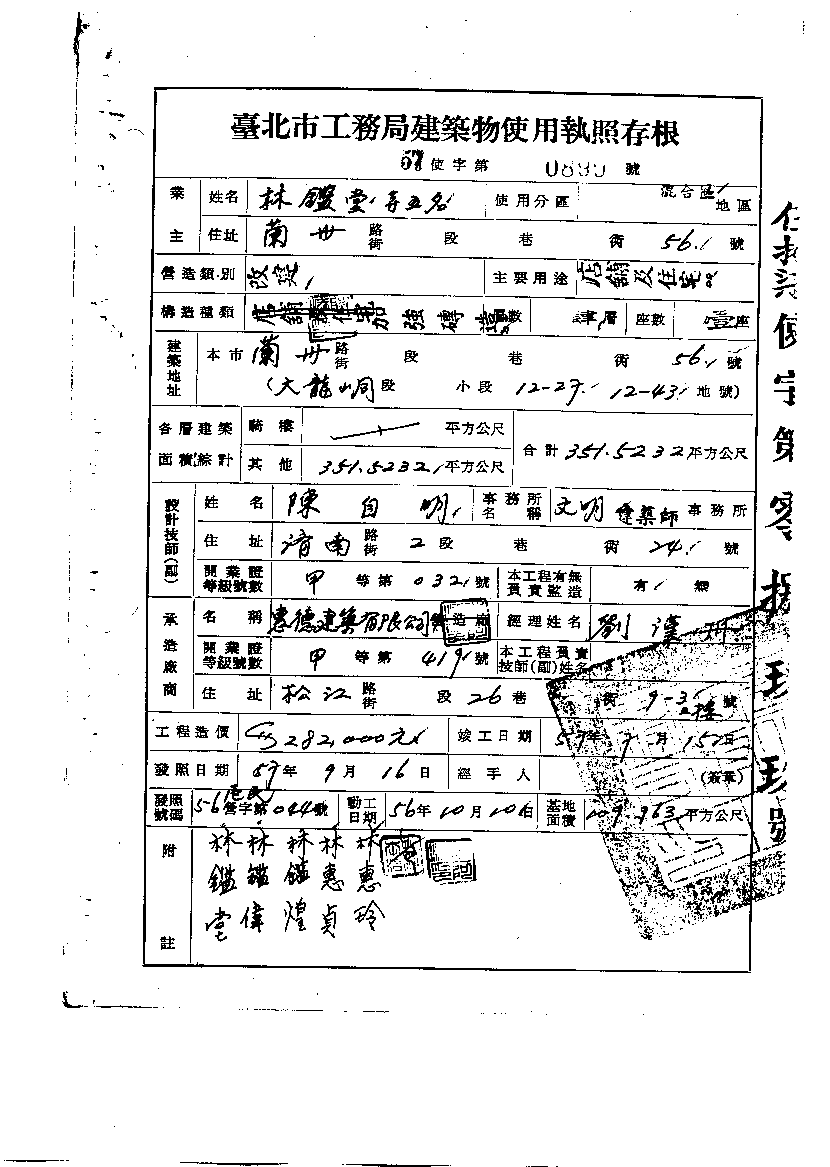 臺北市工務局建築物使用執照存根
57使字第 0899 號
業主 姓名 林鑑堂等五名 使用分區 混合區 地區
住址 蘭州 路街 段 巷 衖 56 號
營造類別 改建 主要用途 店舖及住宅
構造種類 店舖 住宅加強磚造 層數 層 座數 壹座
建築地址 本市 蘭州 路街 段 巷 衖 56 號
(大龍峒段 小段 12-27 12-43 地號)
各層建築面積綜計 騎樓 平方公尺 合計 351.5232 平方公尺
其他 351.5232 平方公尺
設計技師(副) 姓名 陳自明 事務所名稱 文明建築師事務所
住址 濟南 路街 2段 巷 衖 24 號
開業證等級號數 甲 等第 0321 號 本工程有無負責監造 有 無
承造廠商 名稱 惠德建築有限公司營造廠 經理姓名 劉
開業證等級號數 甲 等第 419 號 本工程負責技師(副)姓名
住址 松江 路街 段 26巷 衖 9-3 號
工程造價 282,000元 竣工日期 57年 9月 15日
發照日期 57年 9月 16日 經手人 (簽章)
發照號碼 56營字第044號 動工日期 56年10月10日 基地面積 109.963 平方公尺
附註 林鑑堂 林鑑偉 林鑑煌 林惠貞 林惠玲
使字第零捌玖玖號